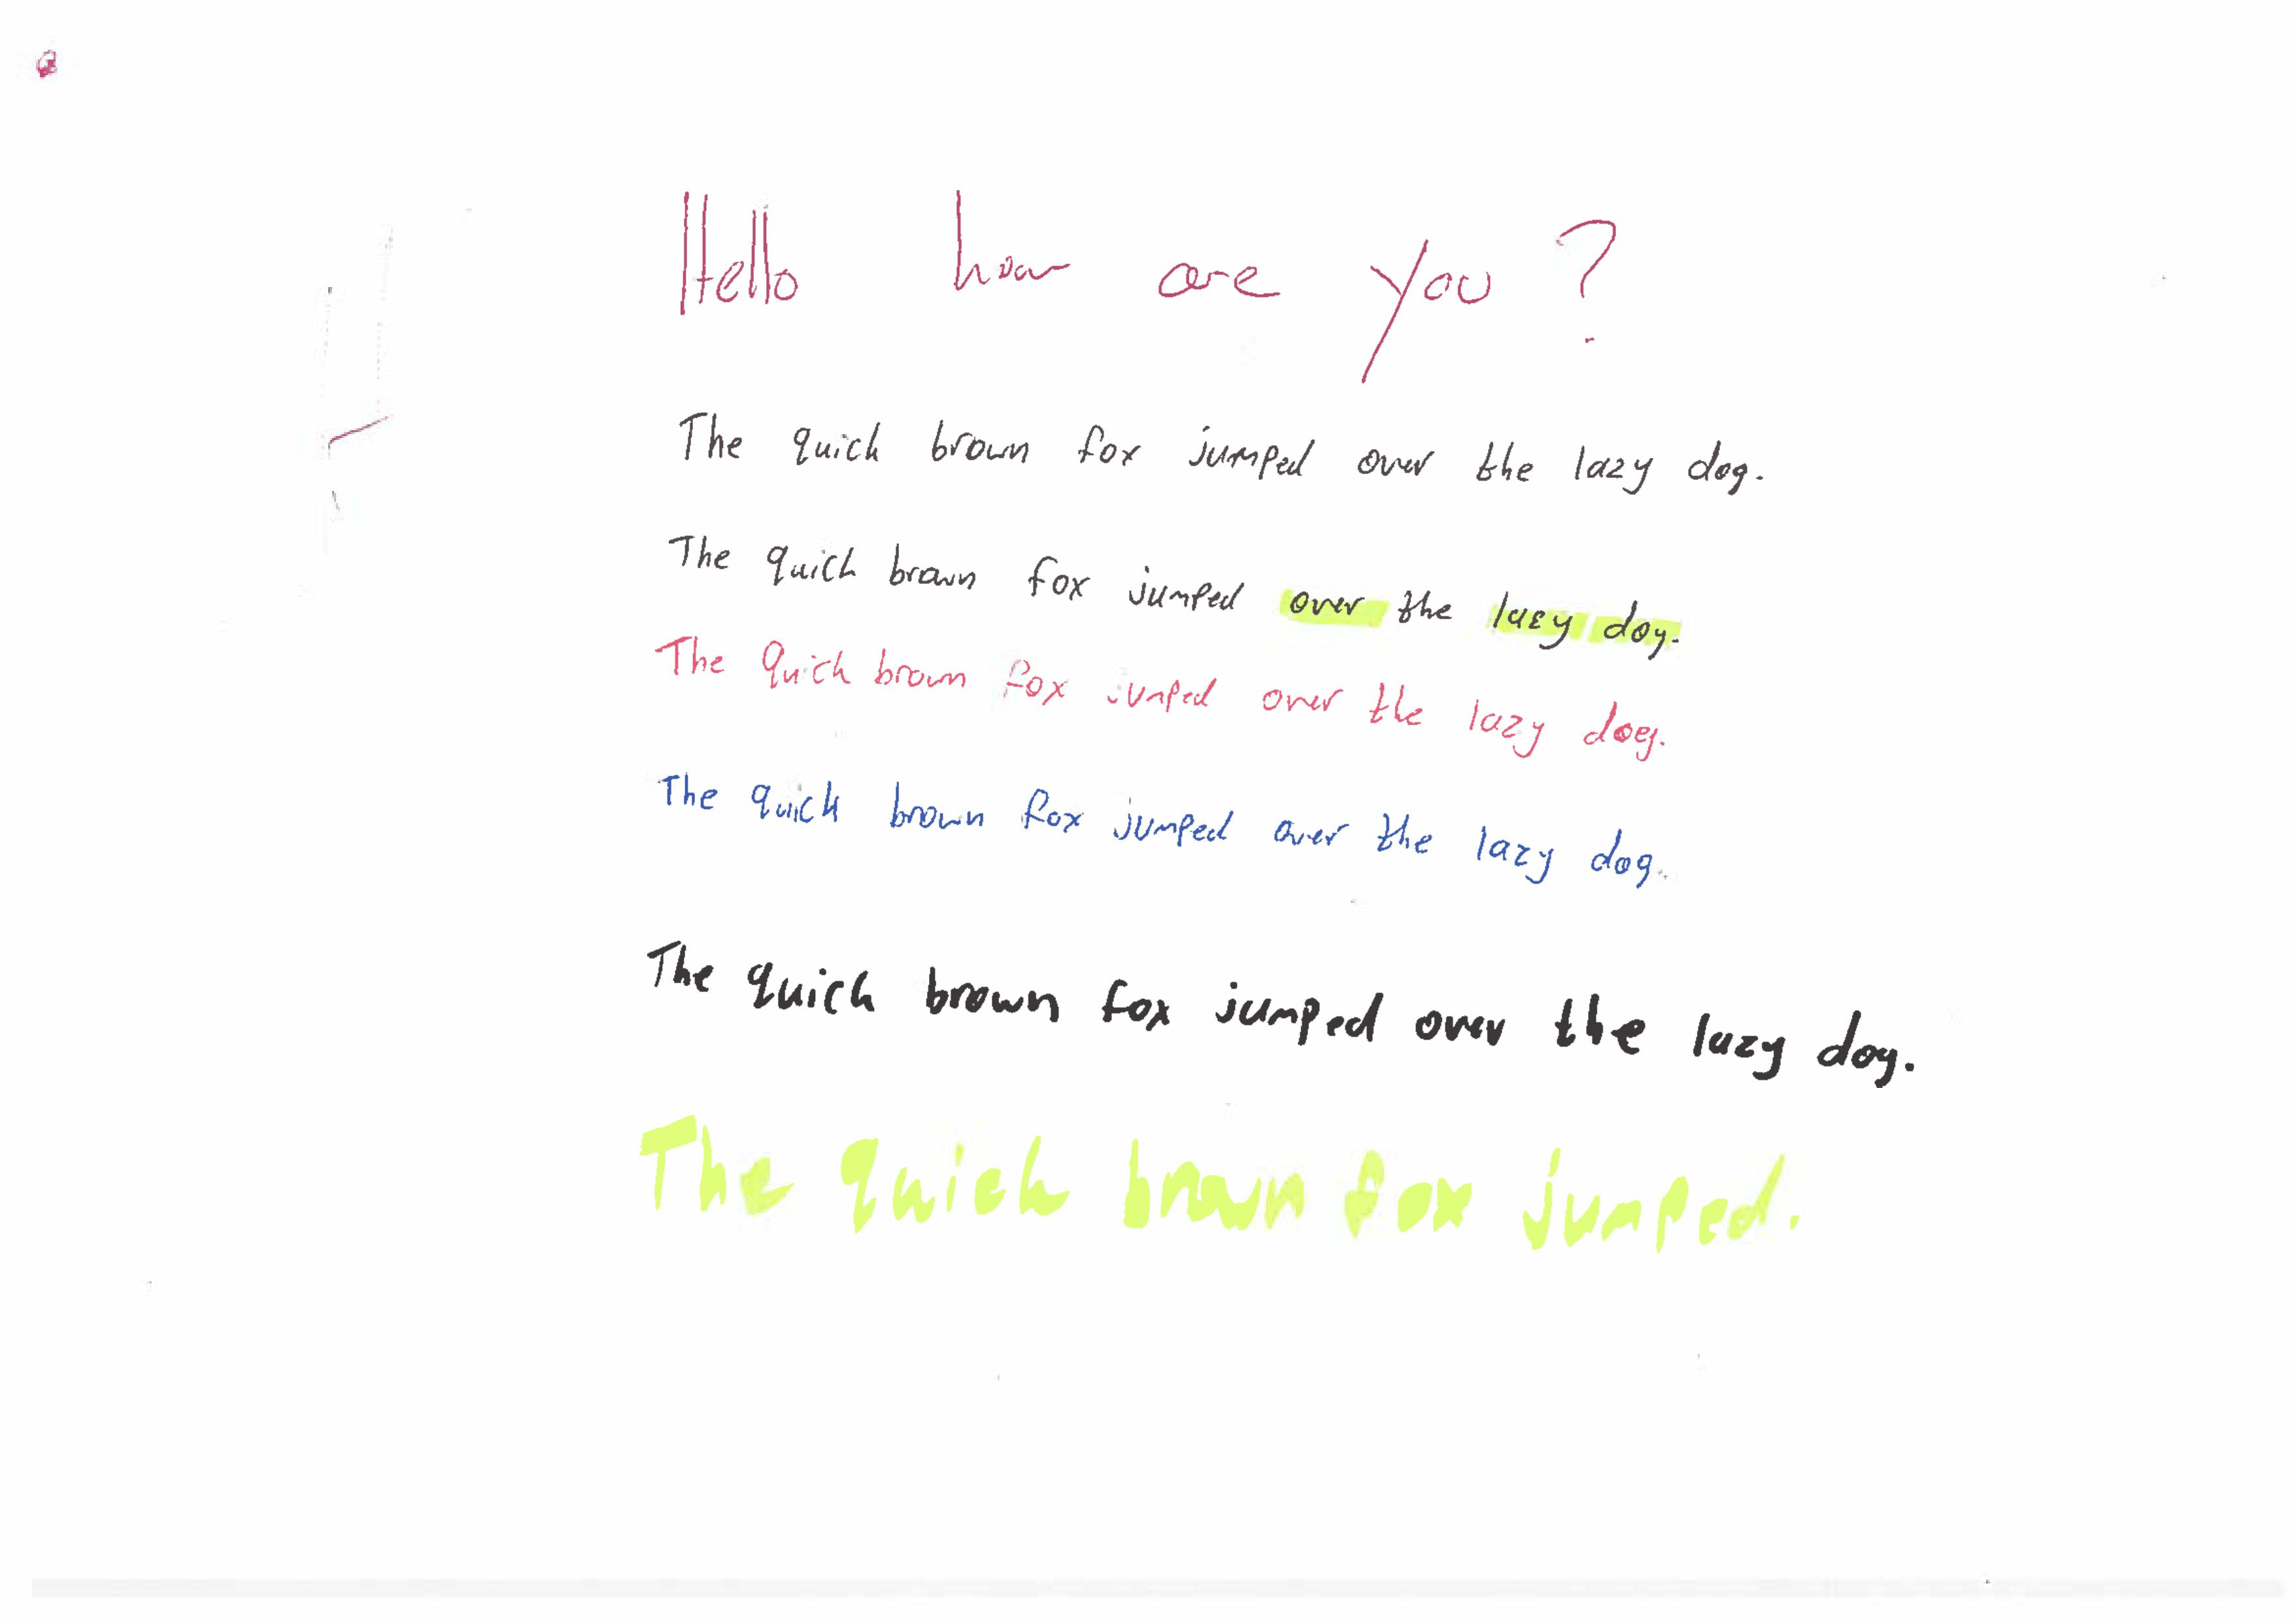 Hello how are you ?
The quick brown fox jumped over the lazy dog.
The quick brown fox jumped over the lazy dog.
The quick brown fox jumped over the lazy dog.
The quick brown fox jumped over the lazy dog.
The quick brown fox jumped over the lazy dog.
The quick brown fox jumped.